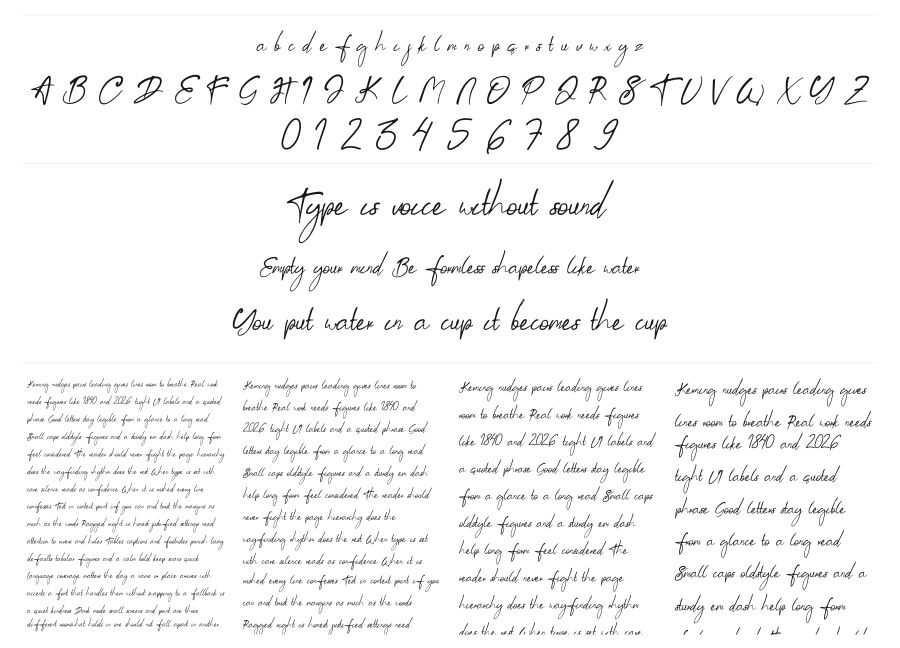 a b c d e f g h i j k l m n o p q r s t u v w x y z
A B C D E F G H I J K L M N O P Q R S T U V W X Y Z
0 1 2 3 4 5 6 7 8 9
Type is voice without sound
Empty your mind Be formless shapeless like water
You put water in a cup it becomes the cup
Kerning nudges pairs leading gives lines room to breathe Real work
needs figures like 1840 and 2026 tight UI labels and a quoted
phrase Good letters stay legible from a glance to a long read
Small caps oldstyle figures and a sturdy em dash help long form
feel considered The reader should never fight the page hierarchy
does the wayfinding rhythm does the rest When type is set with
care silence reads as confidence When it is rushed every line
confesses Test in context print if you can and trust the margins as
much as the words Ragged right is honest justified settings need
attention to rivers and holes Tables captions and footnotes punish lazy
defaults tabular figures and a calm bold keep scans quick
Language coverage matters the day a name or place arrives with
accents a font that handles them without swapping to a fallback is
a quiet kindness Dark mode small screens and print are three
different rooms what holds in one should not fall apart in another
Kerning nudges pairs leading gives lines room to
breathe Real work needs figures like 1840 and
2026 tight UI labels and a quoted phrase Good
letters stay legible from a glance to a long read
Small caps oldstyle figures and a sturdy em dash
help long form feel considered The reader should
never fight the page hierarchy does the
wayfinding rhythm does the rest When type is set
with care silence reads as confidence When it is
rushed every line confesses Test in context print if you
can and trust the margins as much as the words
Ragged right is honest justified settings need
Kerning nudges pairs leading gives lines
room to breathe Real work needs figures
like 1840 and 2026 tight UI labels and
a quoted phrase Good letters stay legible
from a glance to a long read Small caps
oldstyle figures and a sturdy em dash
help long form feel considered The
reader should never fight the page
hierarchy does the wayfinding rhythm
does the rest When type is set with care
Kerning nudges pairs leading gives
lines room to breathe Real work needs
figures like 1840 and 2026
tight UI labels and a quoted
phrase Good letters stay legible
from a glance to a long read
Small caps oldstyle figures and a
sturdy em dash help long form